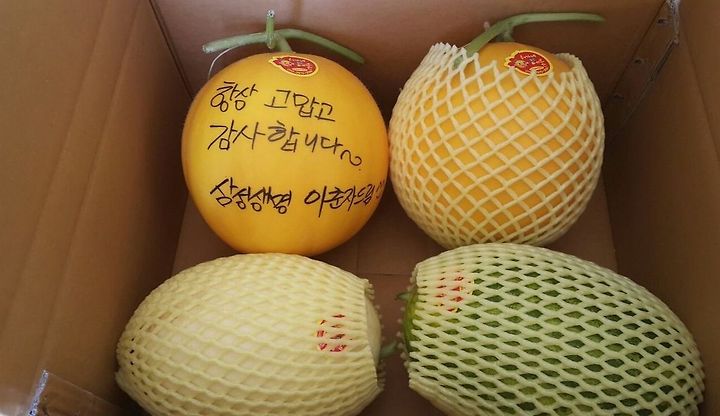 항상 고맙고
감사합니다~
삼성생명 이춘자드림